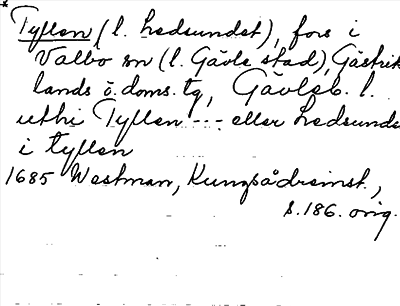 Tyflen (l. hedsundet), fors i
Valbo sn (l. Gävle stad), Gästrik
lands ö. doms. tg, Gävleb. l.
uthi Tyflen --- eller hedsunde
i tyflen
1685 Westman, Kungsådreinst.,
s. 186. orig.